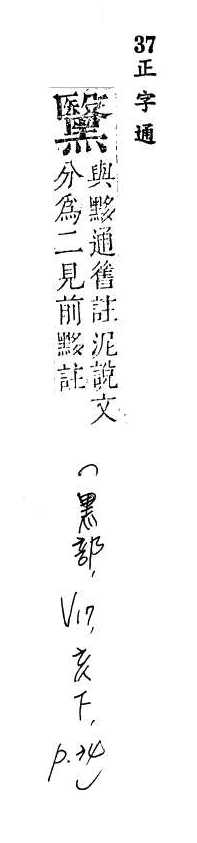 37正字通
黳
與黟通舊註泥說文
分爲二見前黟註
(黑部,V17,亥下,p.34)